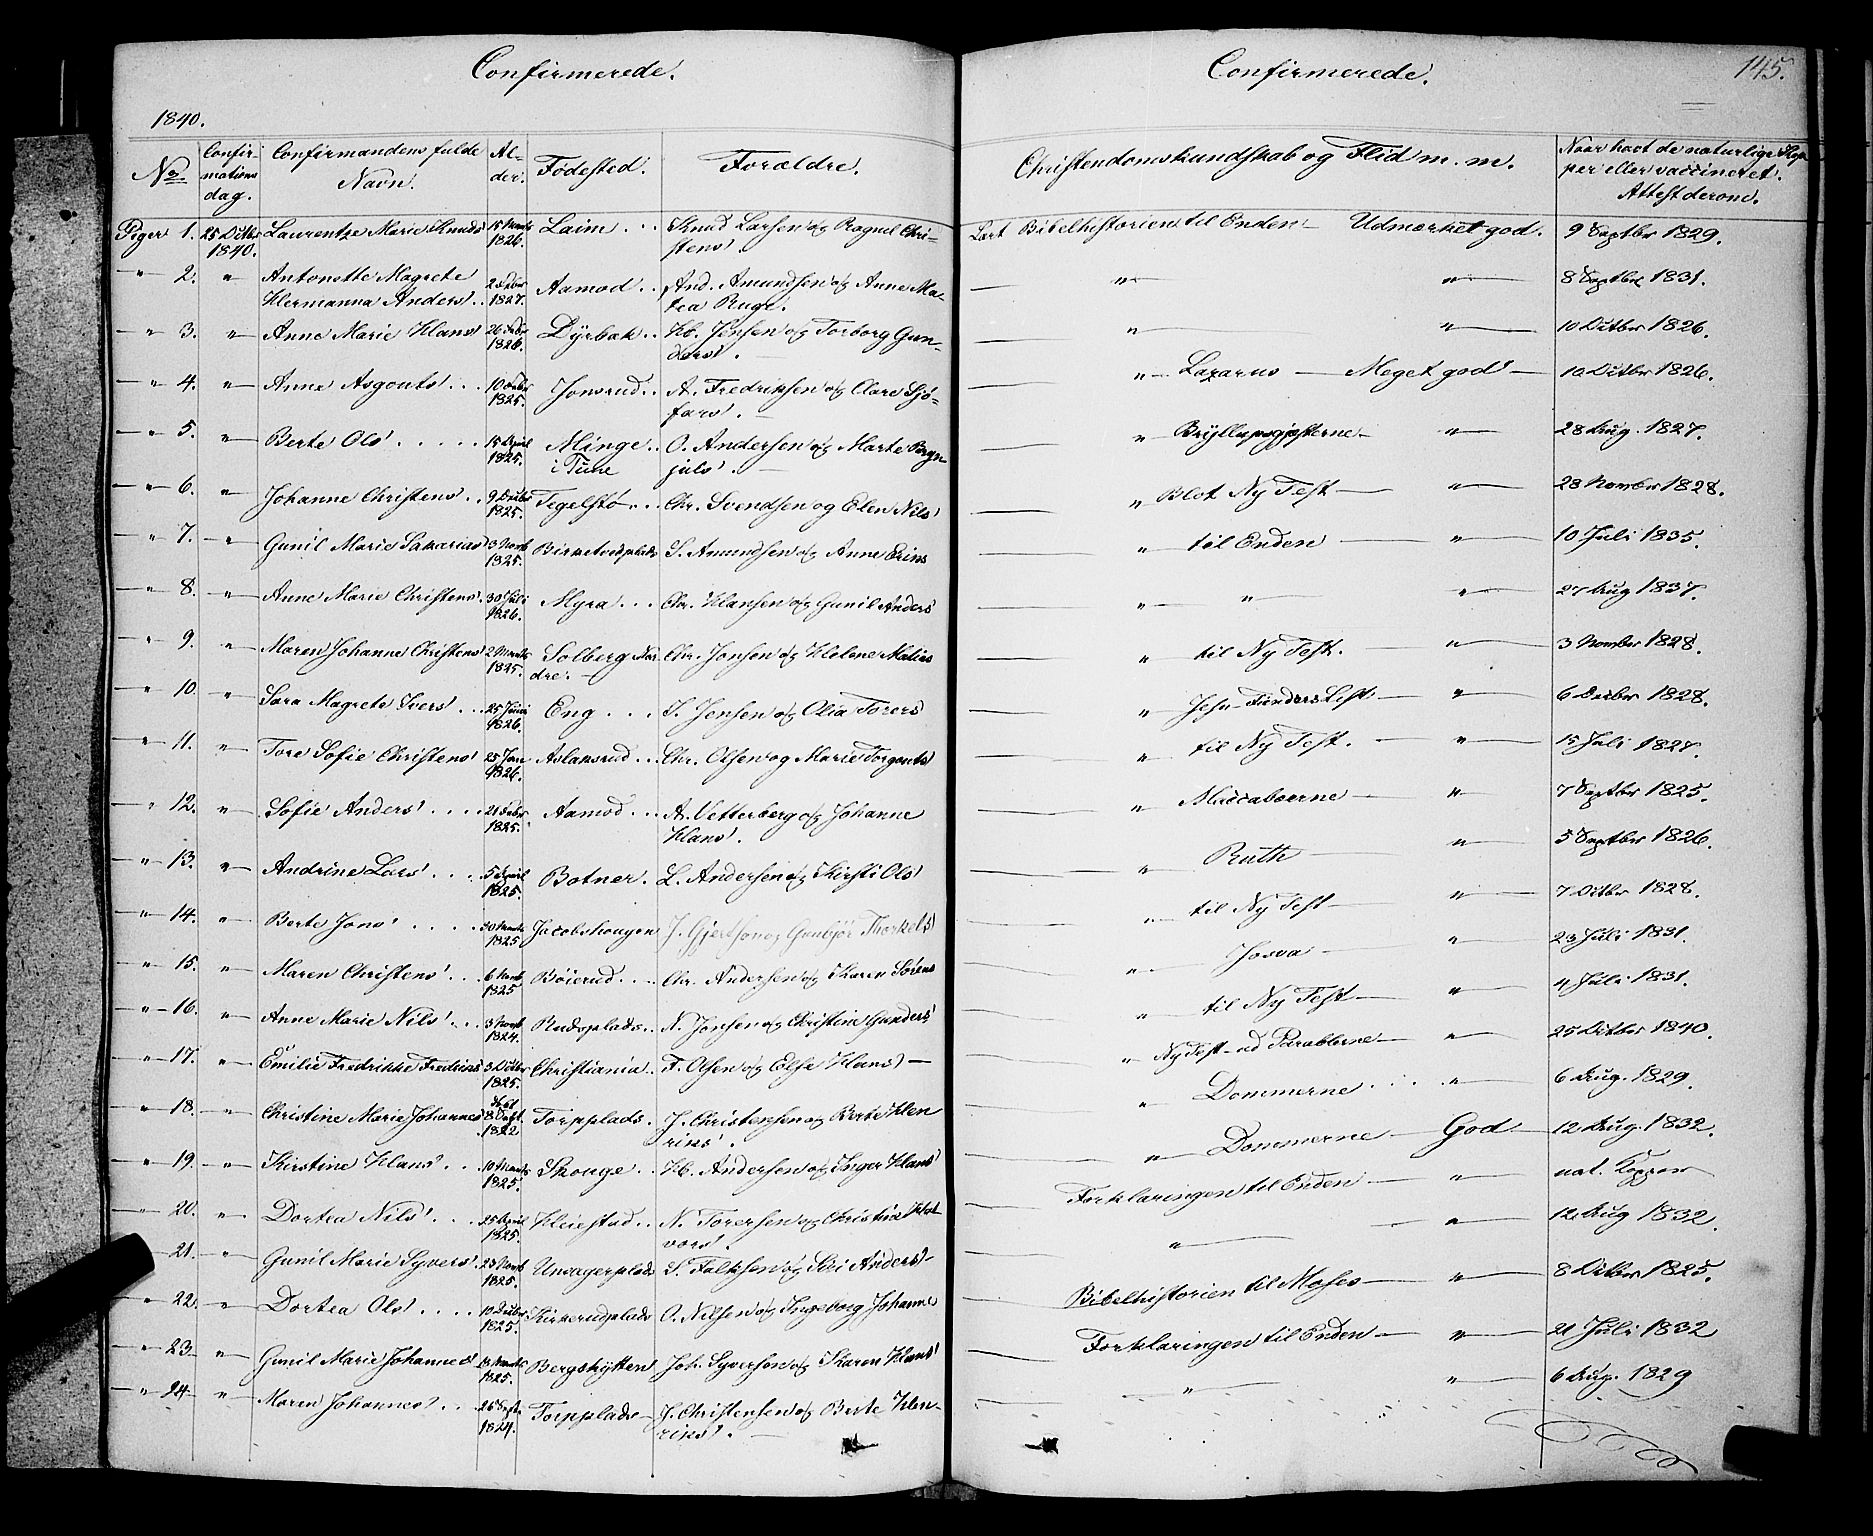 Confirmerede.
1840.
No. Confirmations dag. Confirmandens fulde Navn. Alder. Fødested. Forældre.
Piger 1. 25 Octbr 1840. Laurentze Marie Knuds' 15 1826. Laim . . Knud Larsen og Ragnel Christens'.
" 2. " Antonette Magrete Hermanna Anders'. 1827. Aamod . . And. Amundsen og Anne Matea Ruge.
" 3. " Anne Marie Hans' 26 1826. Dyrbak . . Hb. Jensen og Torborg Gunders'.
" 4. " Anne Asgouts' . . . 10 1825. Jonsrud . . A. Fredriksen og Clare Sjøfars'.
" 5. " Berte Ols' . . . . . 15 April 1825. Minge i Tune O. Andersen og Marte Børgnjuls'.
" 6. " Johanne Christens' . . 9 1825. Tegelstø . . . Chr. Svendsen og Elen Nils'
" 7. " Gunil Marie Sakarias' 3 1825. Birketvedplads S. Amundsen og Anne Eriks
" 8. " Anne Marie Christens'. 30 Juli 1826. Myra . . . Chr. Hansen og Gunil Anders
" 9. " Maren Johanne Christens' 2 1825. Solberg Nordre. Chr. Jonsen og Helene Matias
" 10. " Sara Magrete Ivers' . . 25 Juni 1826. Eng . . . I. Jensen og Olia Torers
" 11. " Tore Sofie Christens' 25 Jan 1826. Aslansrud . . . Chr. Olsen og Marie Torgouts'
" 12. " Sofie Anders' . . . . 21 1825. Aamod . . . A. Vetterberg og Johanne Hans'.
" 13. " Andrine Lars' . . . . 5 April 1825. Botner. L. Andersen og Kirsti Ols'
" 14. " Berte Jons' . . . . . 30 1825 Jacobshougen J. Gjertsen og Gunbjør Thorkels'
" 15. " Maren Christens' . . 6 1825 Bøierud . . . . Chr. Andersen og Karen Sørens
" 16. " Anne Marie Nils' . . . 3 1824. Rudsplads . . N. Jonsen og Christine Gunders'
" 17. " Emilie Fredrikke Fredriks 3 Octbr 1825. Christiania . . F. Olsen og Else Hans' —
" 18. " Christine Marie Johannes' 8 Sept. 1822 Torpplads . . J. Christensen og Berte Henriks'.
" 19. " Kirstine Hans' . . 10 1825. Skouge . . Hb. Andersen og Inger Hans'
" 20. " Dortea Nils' . . . 25 April 1825. Heiestad . . N. Torersen og Christia Halvors'.
" 21. " Gunil Marie Syvers' 23 1825. Unsagerplads S. Falksen og Siri Anders' -
" 22. " Dortea Ols' . . . . 10 1825. Kirkerudplads O. Nilsen og Ingeborg Johanne
" 23. " Gunil Marie Johannes' 1825. Bergshytten Joh. Syversen og Karen Hans'
" 24. " Maren Johannes' . . . 26 Sept. 1824. Torpplads — J. Christensen og Berte Henriks'.
Confirmerede. 145.
Christendomskundskab og Flid m. m. Naar havt de naturlige Kopper eller vaccineret. Attest derom.
Lært Bibelhistorien til Enden — Udmærket god. 9 Septbr 1829.
— " — " — 8 Septbr 1831.
— " — " — 10 Octbr 1826.
— " — Lazarus — Meget god — 10 Octbr 1826.
— " — Bryllupsgjesterne — " — 28 Aug. 1827.
— " Blot Ny Test — " — 28 Novmbr 1828.
— " — til Enden — " — 10 Juli 1835.
— " — " — " — 27 Aug 1837.
— " — til Ny Test. — " — 3 Novmbr 1828.
— " Jesu — " — 6 1828.
— " — til Ny Test. — " — 15 Juli 1827.
— " — Maccabæerne — " — 7 Septbr 1825.
— " — Ruth — " — 5 Septbr 1826.
— " — til Ny Test — " — 7 Octbr 1828.
— " — Josva — " — 23 Juli 1831.
— " — til Ny Test — " — 4 Juli 1831.
— " Ny Test — ud Parablerne — " — 25 Octbr 1840.
— " — Dommerne . . . " — 6 Aug. 1829.
— " — Dommerne — God — 12 Aug. 1832.
— Forklaringen til Enden — " — nat. Kopper
— " — " — 12 Aug 1832.
— Bibelhistorien til Moses — " — 8 Octbr 1825.
— Forklaringen til Enden — " — 21 Juli 1832
— " — " — 6 Aug. 1829